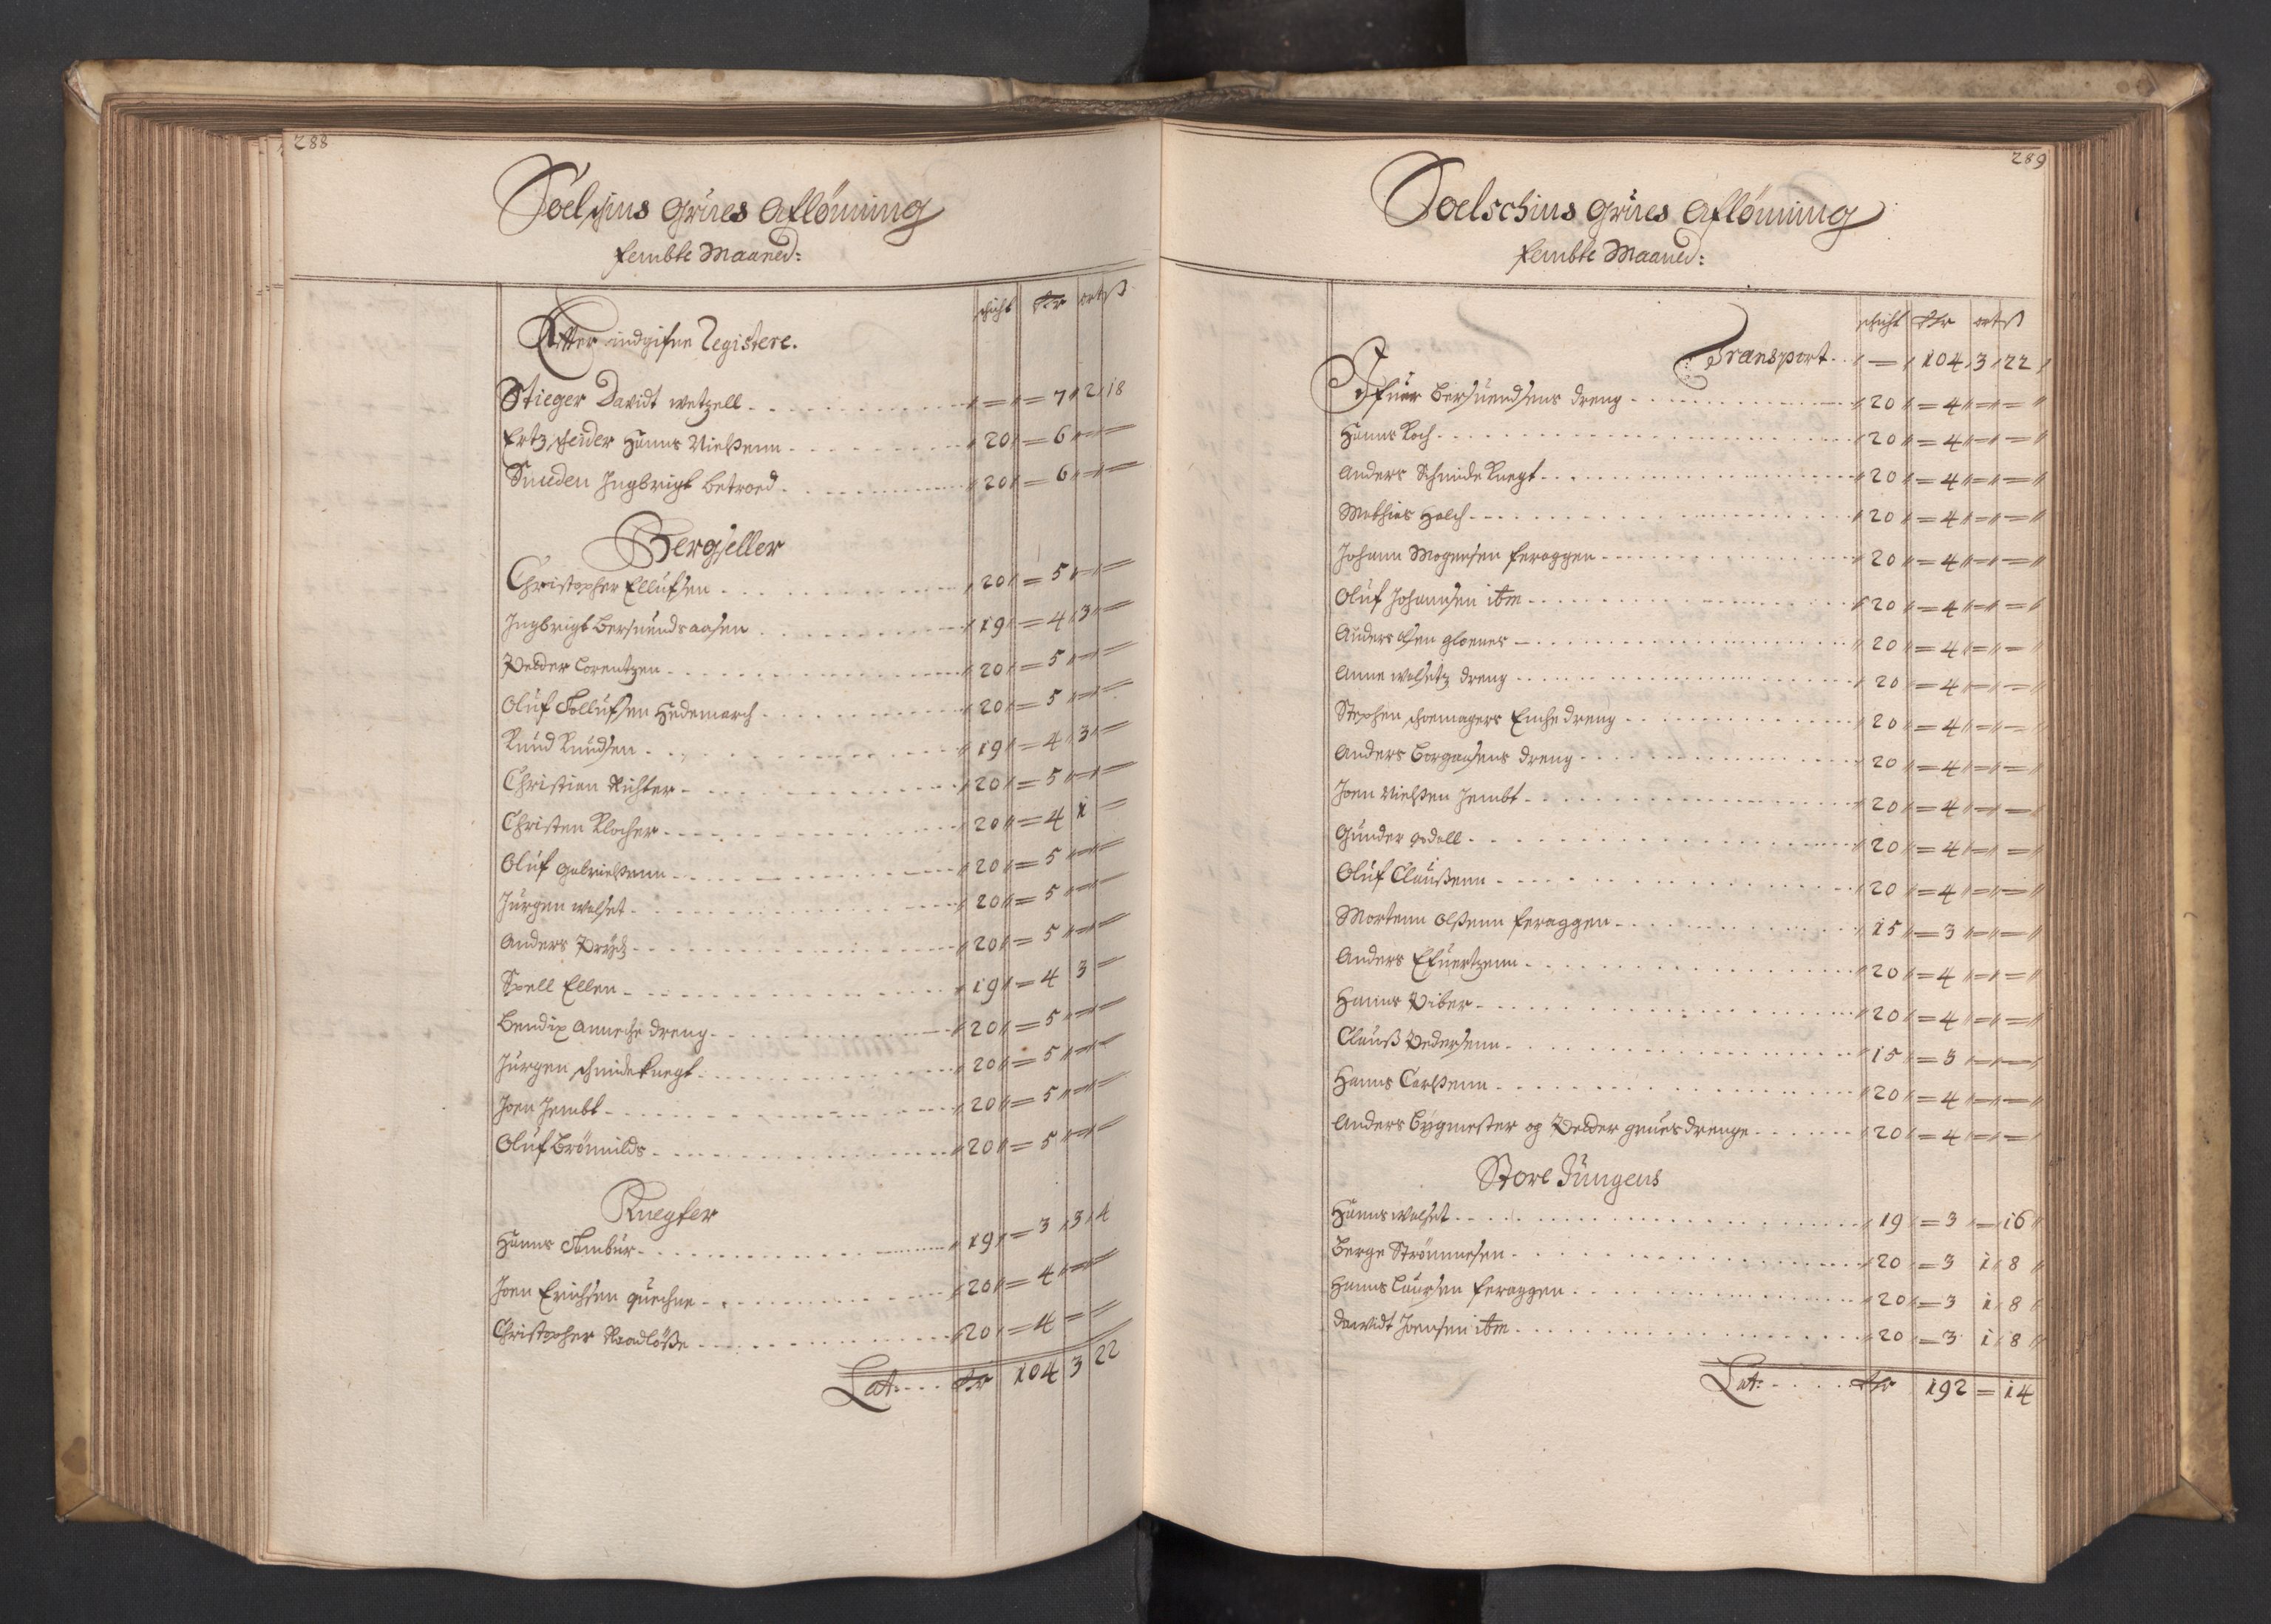 288
Soelschins Grues Aflönning
fembte Maaned:
schicht Rdr ort ß
Efter indgifne Registere.
Stieger Davidt Wetzell - - - = = 7 2 18
Ertzscheider Hanns Nielßenn - 20 = 6 = =
Smeden Ingbrigt Betroed - 20 = 6 = =
Bergseller
Christopher Ellufsen - 20 = 5 = =
Ingbrigt Bersuendsaasen - 19 = 4 3 =
Pedder Lorentzen - 20 = 5 = =
Oluf Tollufsen Hedemarch - 20 = 5 = =
Knud Knudsen - 19 = 4 3 =
Christian Richter - 20 = 5 = =
Christen Klocher - 20 = 4 1 =
Oluf Gabrielßenn - 20 = 5 = =
Jürgen Walset - 20 = 5 = =
Anders Prytz - 20 = 5 = =
Spell Ellen - 19 = 4 3 =
Bendix Anneche dreng - 20 = 5 = =
Jürgen Schmideknegt - 20 = 5 = =
Joen Jembt - 20 = 5 = =
Oluf Brömilds - 20 = 5 = =
Knegter
Hanns Tambur - 19 = 3 3 4
Joen Erichsen Quechne - 20 = 4 = =
Christopher Raadlöße - 20 = 4 = =
Lat: - - - Rdr 104 3 22
289
Soelschins Grues Aflönning
fembte Maaned:
schicht Rdr ort ß
Transport - = 104 3 22
Ifuer Bersuendsens dreng - 20 = 4 = =
Hanns Koch - 20 = 4 = =
Anders Schmideknegt - 20 = 4 = =
Mathias Holch - 20 = 4 = =
Johann Mogensen feraggen - 20 = 4 = =
Oluf Johannsen itm - 20 = 4 = =
Anders olsen Gloenes - 20 = 4 = =
Anne Walsetz dreng - 20 = 4 = =
Stephen schomagers Enche dreng - 20 = 4 = =
Anders Borgaasens dreng - 20 = 4 = =
Joen Nielßen Jembt - 20 = 4 = =
Gunder Odell - 20 = 4 = =
Oluf Claußenn - 20 = 4 = =
Mortenn Olßenn feraggen - 15 = 3 = =
Anders Efuertzenn - 20 = 4 = =
Hanns Piber - 20 = 4 = =
Clauß Pedersenn - 15 = 3 = =
Hanns Carlßenn - 20 = 4 = =
Anders Bygmester og Pedder grues drenge - 20 = 4 = =
Store Jungens
Hanns Walset - 19 = 3 = 16
Berge Strömmesen - 20 = 3 1 8
Hanns Laursen feraggen - 20 = 3 1 8
Davidt Joensen itm - 20 = 3 1 8
Lat: - - - Rdr 192 = 14